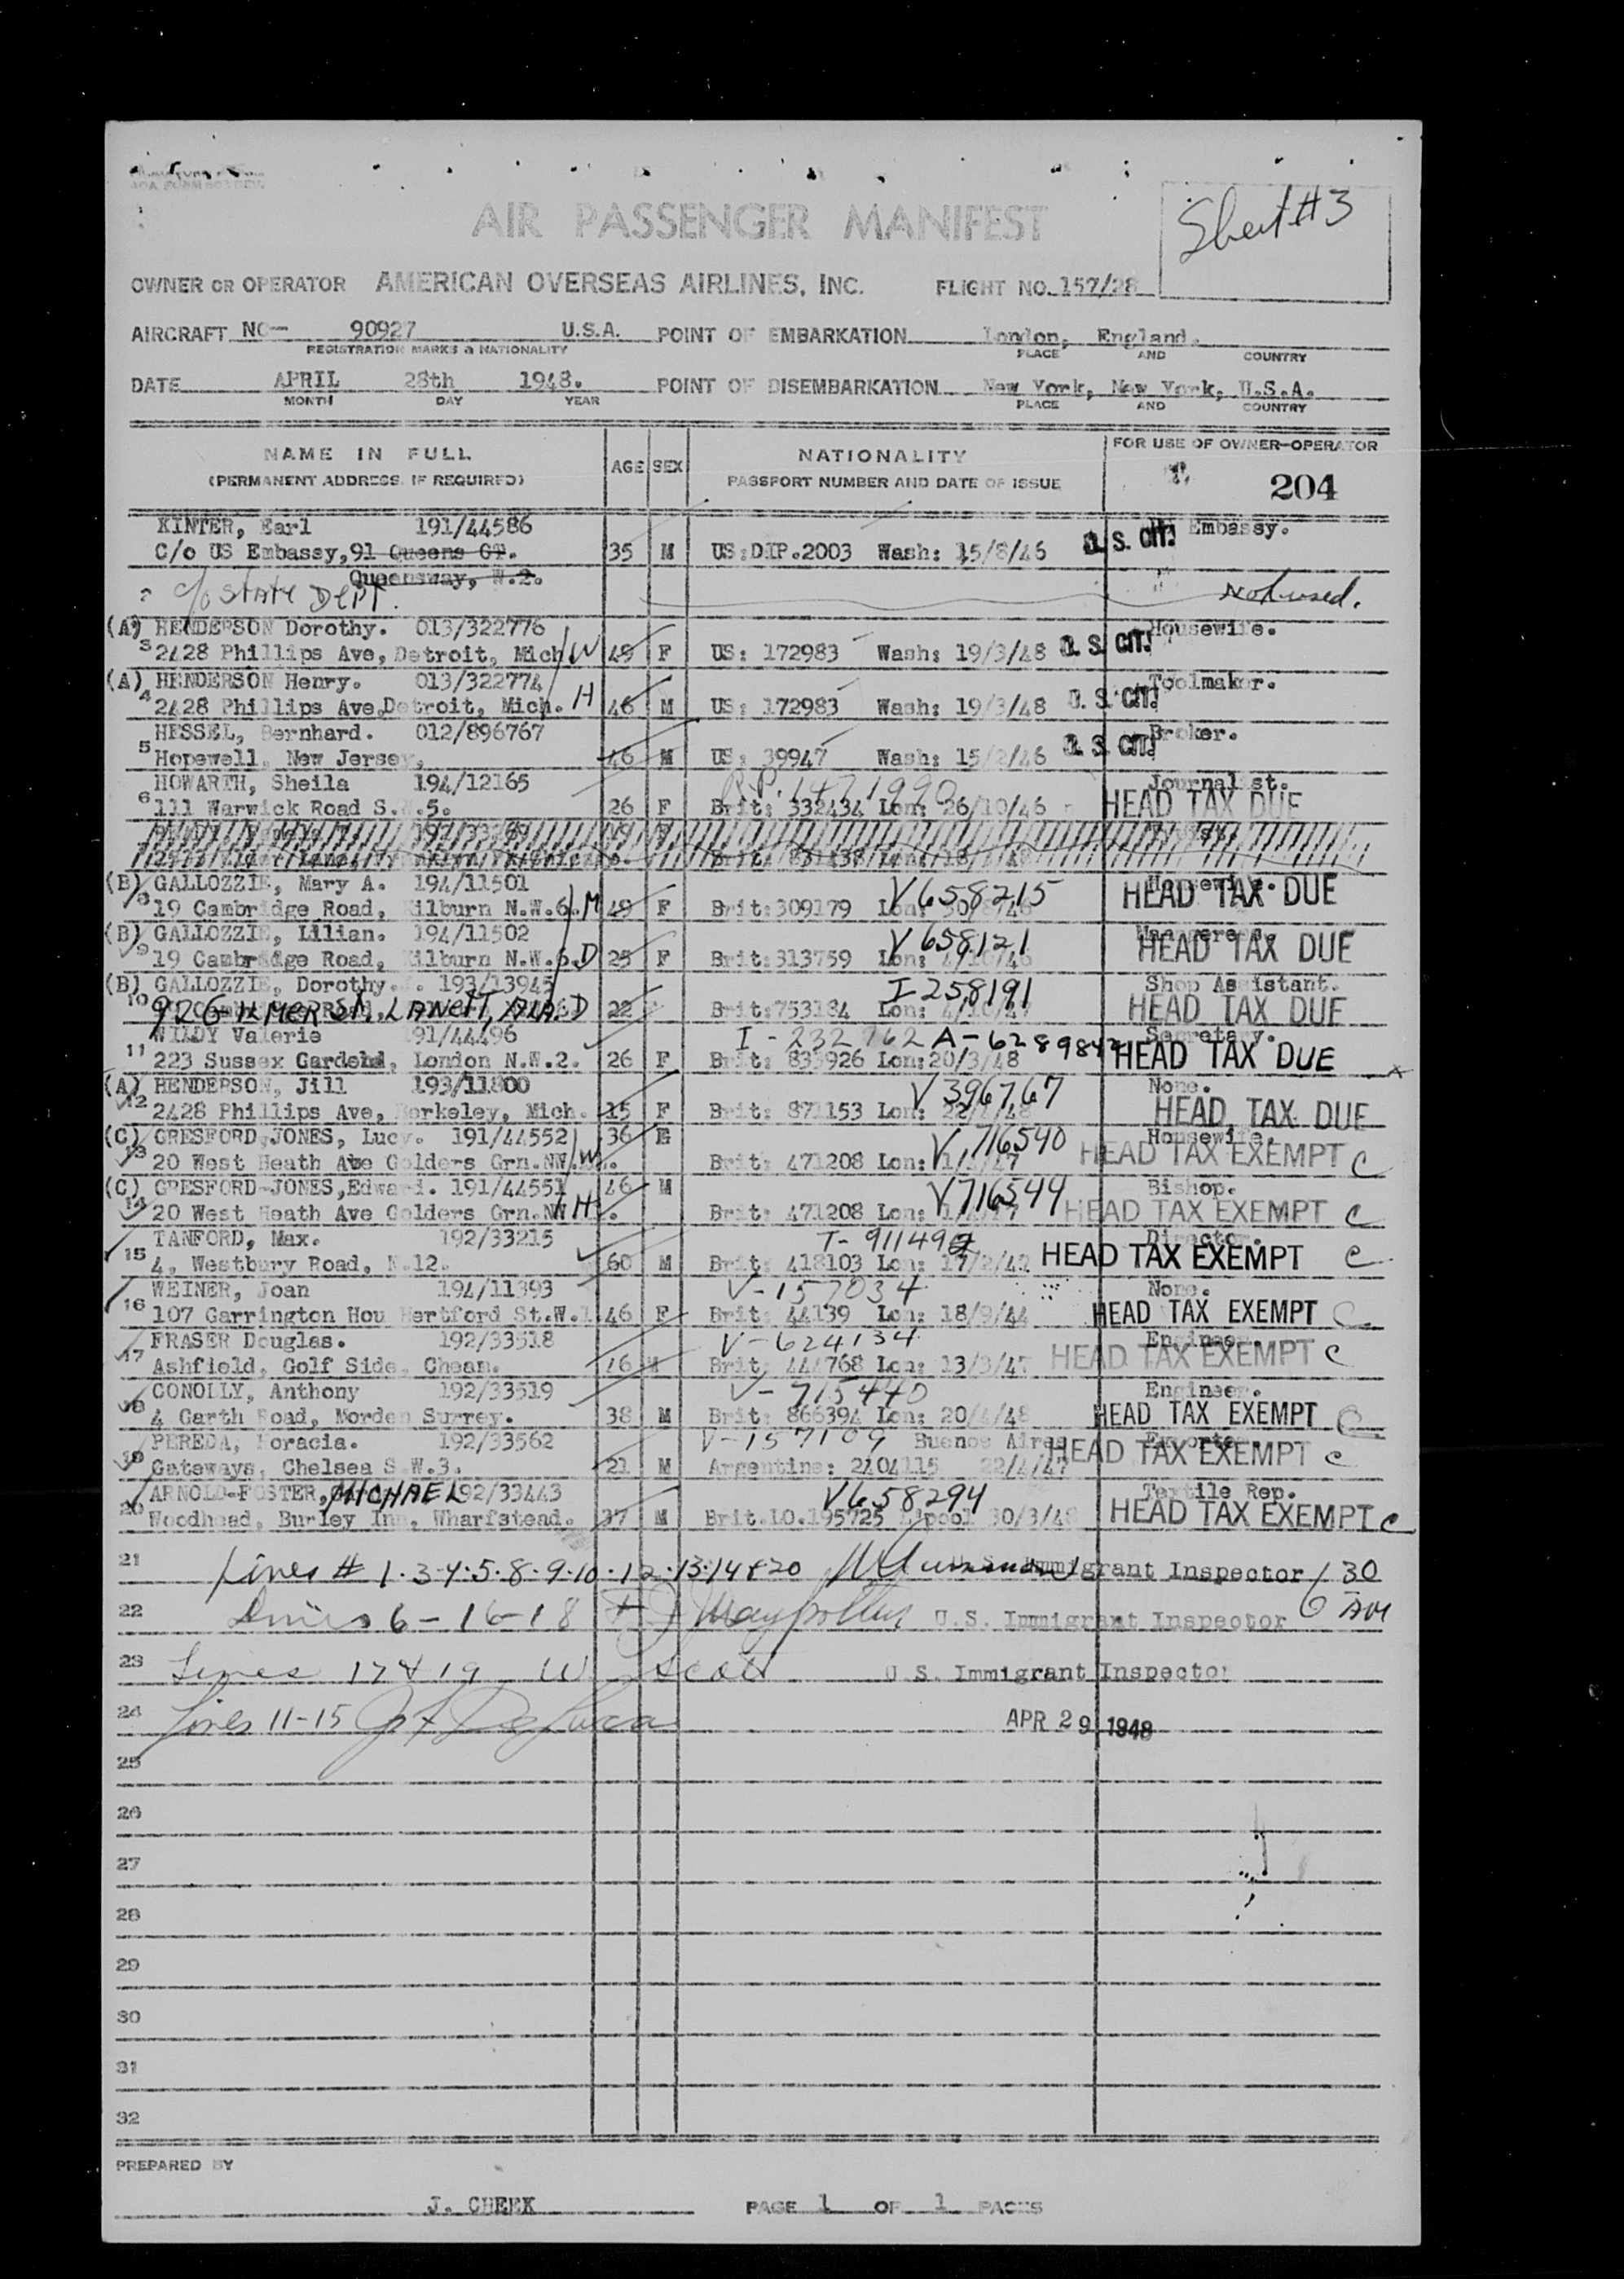 AIR PASSENGER MANIFEST
Sheet #3
OWNER OR OPERATOR AMERICAN OVERSEAS AIRLINES, INC. FLIGHT NO. 157/28
AIRCRAFT NC- 90927 U.S.A. POINT OF EMBARKATION London, England.
REGISTRATION MARKS & NATIONALITY PLACE AND COUNTRY
DATE APRIL 28th 1948. POINT OF DISEMBARKATION New York, New York, U.S.A.
MONTH DAY YEAR PLACE AND COUNTRY
NAME IN FULL AGE SEX NATIONALITY FOR USE OF OWNER-OPERATOR
(PERMANENT ADDRESS IF REQUIRED) PASSPORT NUMBER AND DATE OF ISSUE 204
KINTER, Earl 191/44586 Embassy.
C/o US Embassy, 91 Queens GT. 35 M US:DIP.2003 Wash: 15/8/46 U.S. CIT.
Queensway, W.2.
c/o STATE DEPT. Not used.
(A) HENDERSON Dorothy. 013/322776 Housewife.
3 2428 Phillips Ave, Detroit, Mich. W 49 F US: 172983 Wash: 19/3/48 U.S. CIT.
(A) HENDERSON Henry. 013/322774 Toolmaker.
4 2428 Phillips Ave, Detroit, Mich. H 46 M US: 172983 Wash: 19/3/48 U.S. CIT.
HESSEL, Bernhard. 012/896767 Broker.
5 Hopewell, New Jersey, 46 M US: 39947 Wash: 15/2/46 U.S. CIT.
HOWARTH, Sheila 194/12165 R.P. 1471990 Journalist.
6 111 Warwick Road S.W.5. 26 F Brit: 332434 Lon: 26/10/46 HEAD TAX DUE
(B) GALLOZZIE, Mary A. 194/11501 V658215 Housewife.
8 19 Cambridge Road, Kilburn N.W.6. M 49 F Brit:309179 Lon: HEAD TAX DUE
(B) GALLOZZIE, Lilian. 194/11502 V658121
9 19 Cambridge Road, Kilburn N.W.6. D 25 F Brit:313759 Lon: HEAD TAX DUE
(B) GALLOZZIE, Dorothy. 193/13945 I258191 Shop Assistant.
10 92 G H MER ST. LANETT, ALA. D 22 Brit:753184 Lon: HEAD TAX DUE
WILDY Valerie 191/44496 I-232762 A-6289842 Secretary.
11 223 Sussex Gardens, London N.W.2. 26 F Brit: 833926 Lon:20/3/48 HEAD TAX DUE
(A) HENDERSON, Jill 193/11800 V396767 None.
12 2428 Phillips Ave, Berkeley, Mich. 15 F Brit: 871153 Lon: HEAD TAX DUE
(C) GRESFORD-JONES, Lucy. 191/44552 36 F V716540 Housewife.
13 20 West Heath Ave Golders Grn.NW. W Brit: 471208 Lon: HEAD TAX EXEMPT C
(C) GRESFORD-JONES, Edward. 191/44551 46 M V716544 Bishop.
14 20 West Heath Ave Golders Grn.NW H Brit: 471208 Lon: HEAD TAX EXEMPT C
TANFORD, Max. 192/33215 T-91149 Director.
15 4, Westbury Road, N.12. 60 M Brit: 418103 Lon: 17/2/4 HEAD TAX EXEMPT C
WEINER, Joan 194/11393 V-157034 None.
16 107 Carrington Hou Hertford St.W.1. 46 F Brit: 44139 Lon: 18/9/44 HEAD TAX EXEMPT C
FRASER Douglas. 192/33518 V-624134 Engineer.
17 Ashfield, Golf Side, Cheam. 46 M Brit: 444768 Lon: 13/3/47 HEAD TAX EXEMPT C
CONOLLY, Anthony 192/33519 V-715440 Engineer.
18 4 Garth Road, Morden Surrey. 38 M Brit: 866394 Lon: 20/4/48 HEAD TAX EXEMPT C
PEREDA, Horacia. 192/33562 V-157109 Buenos Aires Exporter
19 Gateways, Chelsea S.W.3. 21 M Argentine: 2404115 22/4/47 HEAD TAX EXEMPT C
ARNOLD-FOSTER, MICHAEL 192/33443 V658294 Textile Rep.
20 Woodhead, Burley Inn, Wharfstead. 37 M Brit.LO.195725 L'pool 30/3/48 HEAD TAX EXEMPT C
21 Lines # 1·3·4·5·8·9·10·12·13·14+20 Immigrant Inspector 30
22 Lines 6-16-18 U.S. Immigrant Inspector
23 Lines 17 & 19 W. Scott U.S. Immigrant Inspector
24 Lines 11-15 DeLuca APR 29 1948
25
26
27
28
29
30
31
32
PREPARED BY
J. CHEEK PAGE 1 OF 1 PAGES